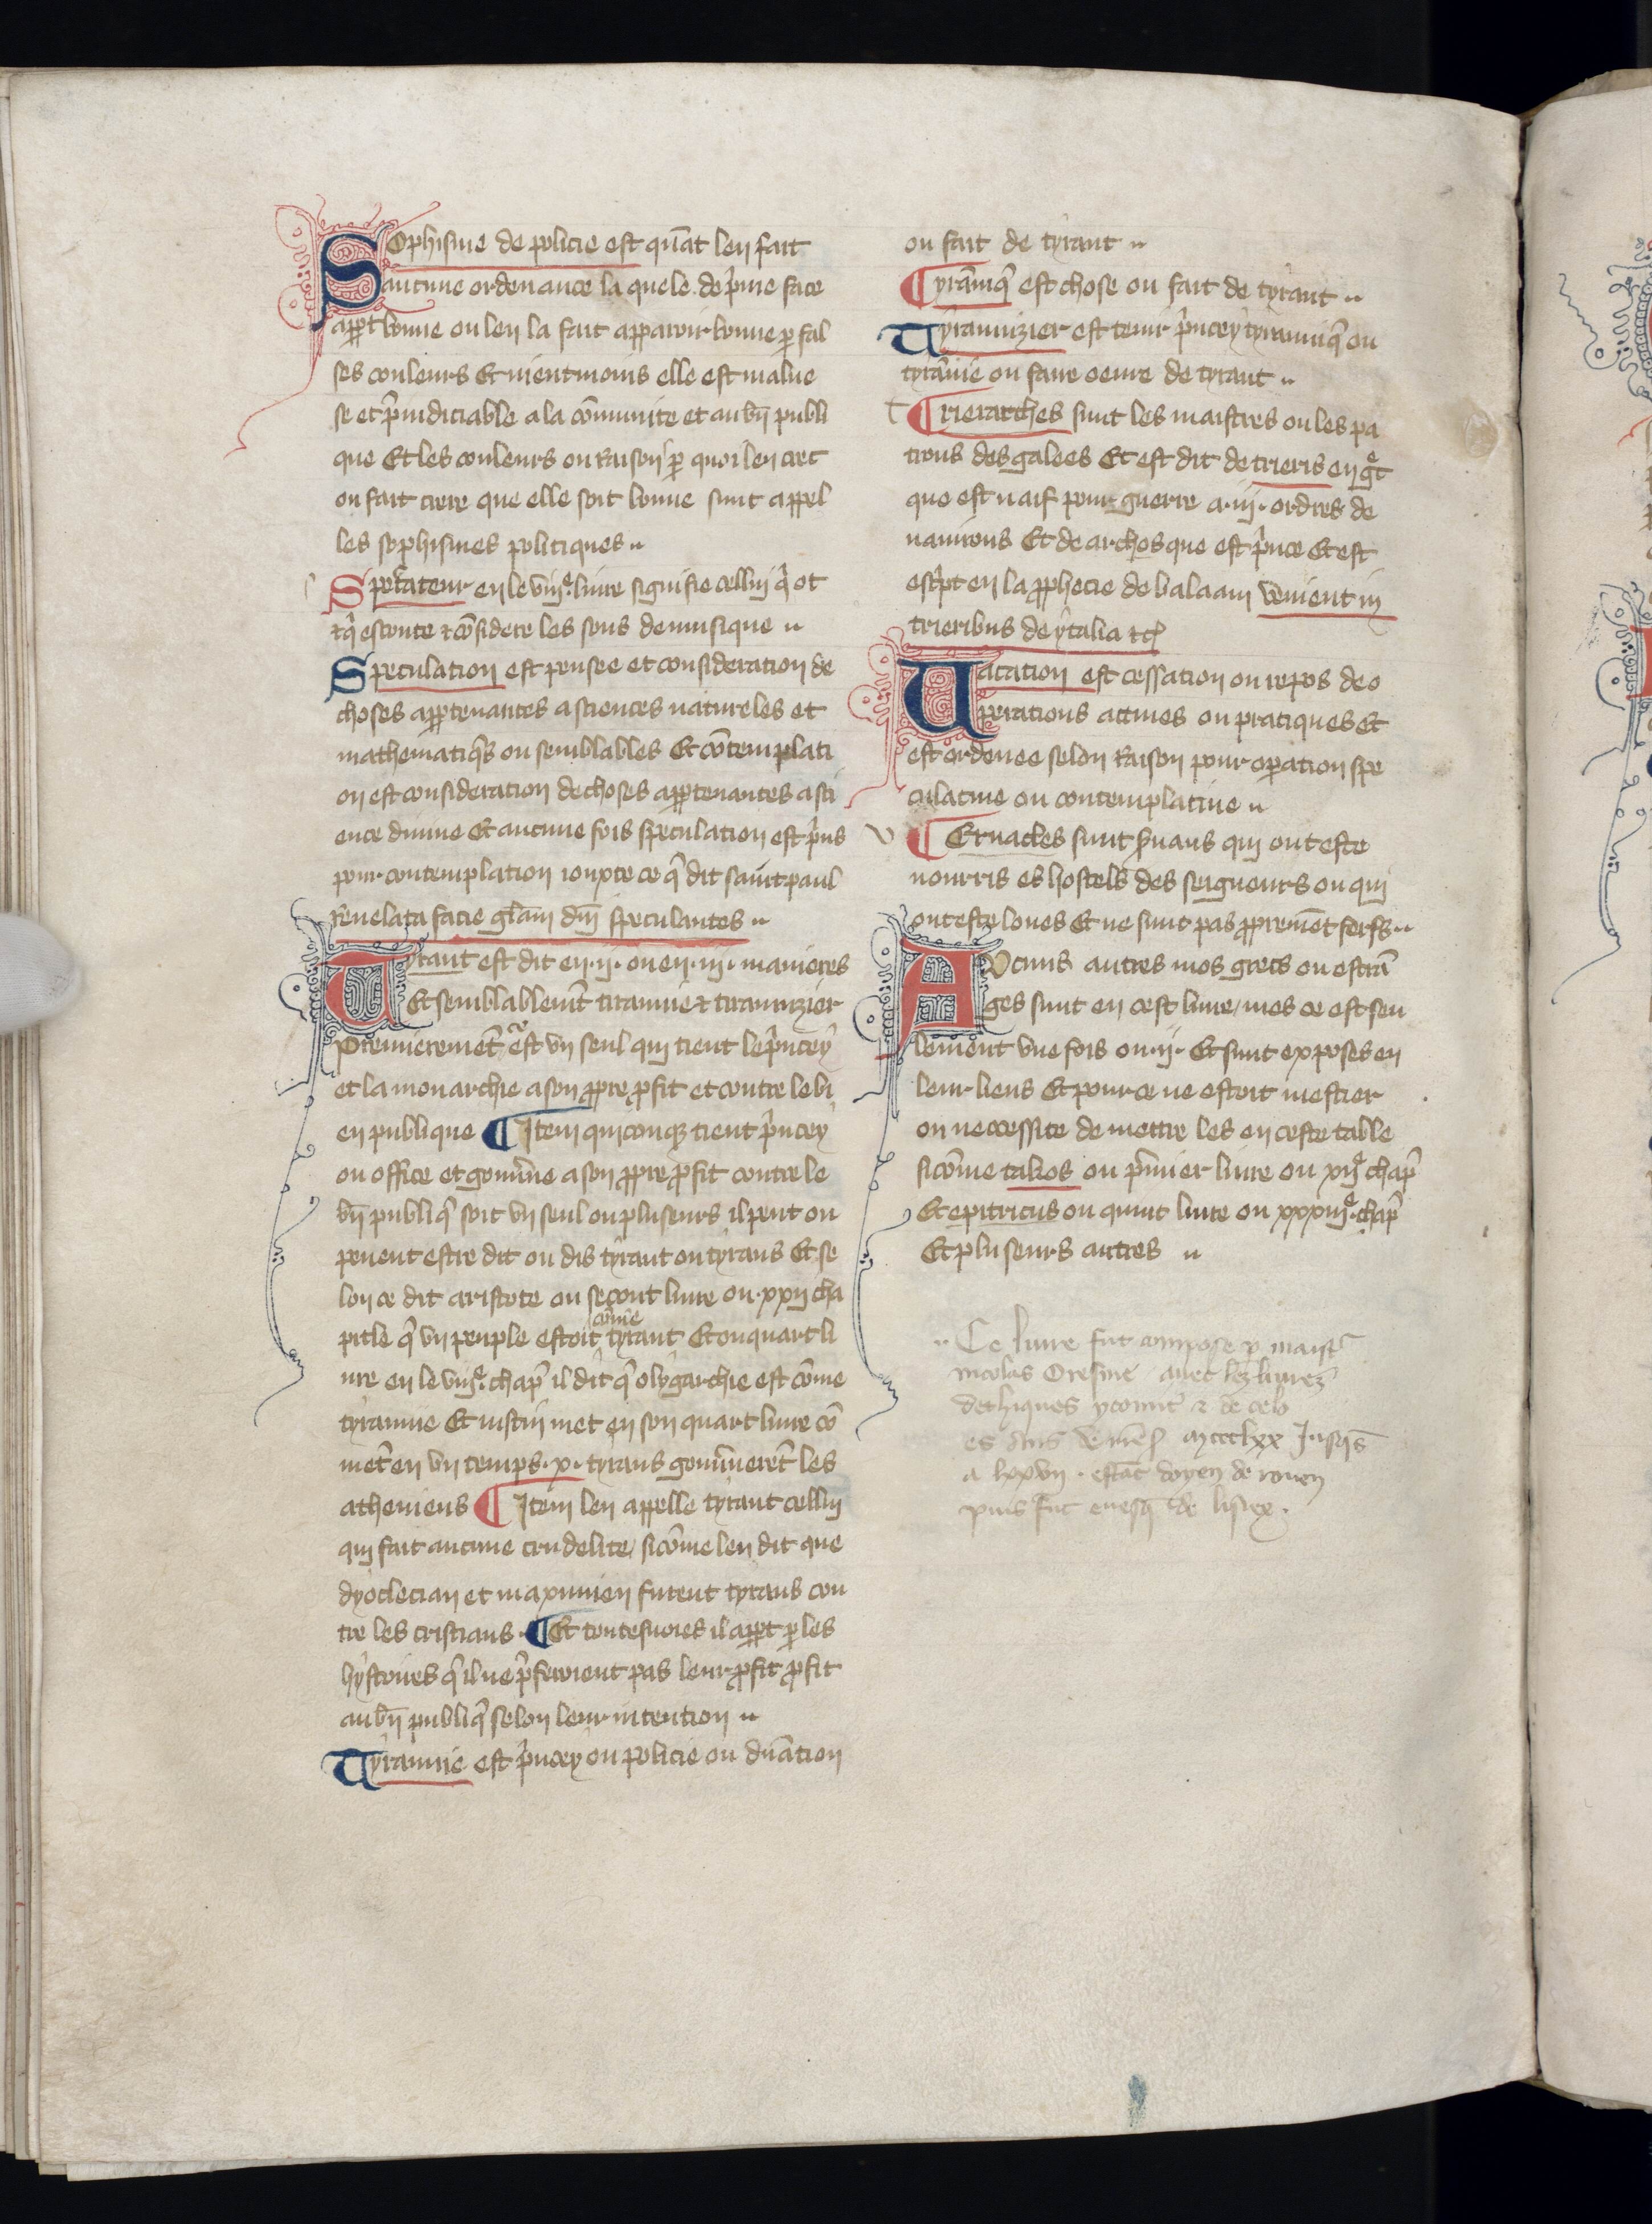 Sophisme de policie est qu̅at len fait
aucune ordenance la quele de p̍me face
app̲t bonne ou len la fait apparoir bonne ꝑ fal
ses couleurs Et nientmoins elle est malue
se et p̍iudiciable a la co̅munite et au bn̅ publi
que Et les couleurs ou raison ꝑ quoi len crec
ou fait crere que elle soit bonne sunt appel
les sophismes politiques
Spectateur en le viij.e liure signifie cellui q̍ ot
⁊ q̍ escoute ⁊ co̅sidere les sons de musique
Speculation est pensee et consideration de
choses appartenantes a sciences natureles et
mathematiq̅s ou semblables Et co̅templati
on est consideration de choses appartenantes a sci
ence diuine Et aucune fois speculation est p̍ns
pour contemplation iouxte ce q̅ dit saint paul
Reuelata facie gl̅am dn̅i speculantes
Tyrant est dit en .ij. ou en .iij. manieres
Et semblablem̅t tirannie ⁊ tirannizier
Premierem̅et est vn seul qui tient le p̍ncey
et la monarchie a son ꝓpre ꝓfit et contre le bi
en publique ¶ Item quiconq̅ tient p̍ncey
ou office et gouu̅ne a son ꝓpre ꝓfit contre le
bn̅ publiq̅ soit vn seul ou pluseurs il peut ou
peuent estre dit ou dis tyrant ou tyrans Et se
lon ce dit aristote ou secont liure ou .xxij cha
co̅me
pitle q̅ vn peuple estoit tyrant Et ou quart li
ure en le viij.e chap̍ il dit q̅ olygarchie est co̅me
tyrannie Et iustin met en son quart liure co̅
me̅t en vn temps .x. tyrans gouu̅nere̅t les
atheniens ¶ Item len appelle tyrant cellui
qui fait aucune crudelite / sico̅me len dit que
dyoclecian et maximien furent tyrans con
tre les cristians . ¶ Et toutesuoies il app̲t ꝑ les
hystoires q̅ il ne p̍feroient pas leur ꝓfit ꝓfit
au bn̅ publiq̅ selon leur intention
Tyrannie est p̍ncey ou policie ou dn̅ation
ou fait de tyrant
¶ Tyra̅niq̅ est chose ou fait de tyrant
Tyrannizier est tenir p̍ncey tyranniq̅ ou
tyra̅nie ou faire oeure de tyrant
¶ Trierarches sunt les maistres ou les pa
trons des galees Et est dit de trieris en g̍c
que est naif pour guerre a .iij. ordres de
nauirons Et de archos que est p̍nce Et est
esc̍pt en la ꝓphecie de balaam venient in
trieribus de ytalia ⁊c
Vacation est cessation ou repos de o
perations actiues ou pratiques Et
est ordenee selon raison pour oꝑation spe
culatiue ou contemplatiue
¶ Vernacles sunt s̍uans qui ont este
nourris es hostels des seigneurs ou qui
ont este loues Et ne sunt pas ꝓpreme̅t serfs
AVcuns autres mos grecs ou estra̅
ges sunt en cest liure / mes ce est seu
lement vne fois ou .ij. Et sunt exposes en
leur liens Et pour ce ne estoit mestier
ou neccessite de mettre les en ceste table
sico̅me talios ou p̍mier liure ou xij.e chap̍
Et epitricus ou quint liure ou xxxiij.e chap̍
Et pluseurs autres
Ce liure fut compose ꝑ maist̍
nicolas Oresme auec lez liurez
dethiques yconni̍ ⁊ de celo
mccclxx Jusq̅s
a lxxvij . esta̅t doyen de rouen
puis fut euesq̅ de lisiex .